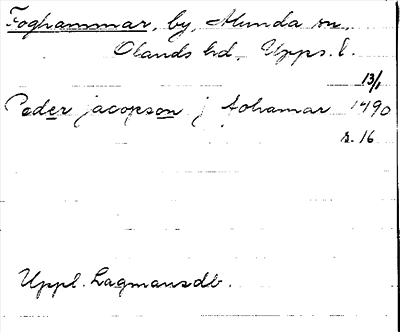 Foghammar, by, Alunda sn.,
Olands hd., Upps. l.
13/1
Peder jacopson j fohamar 1490
s. 16
Uppl. Lagmansdb.